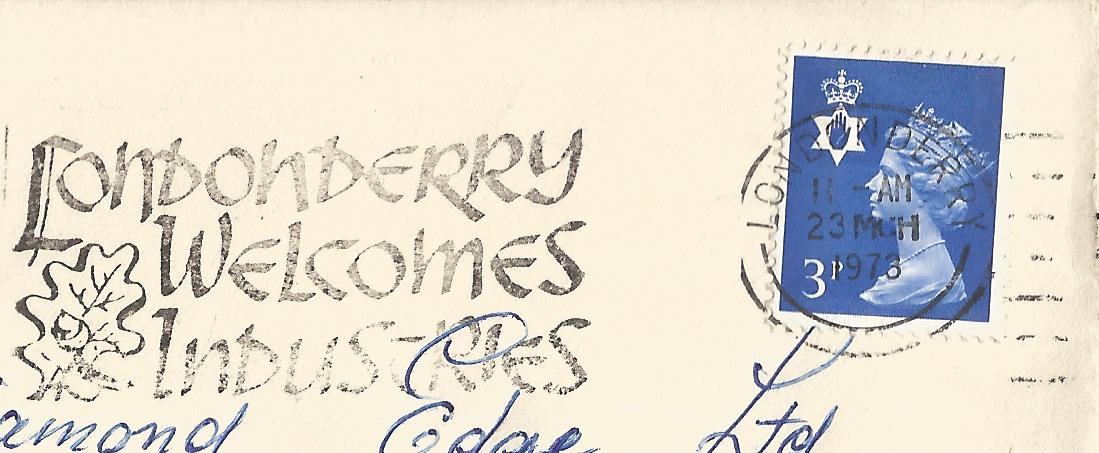 LONDONDERRY
WELCOMES
INDUSTRIES
LONDONDERRY
11 - AM
23 MCH
1973
3P
Edge Ltd